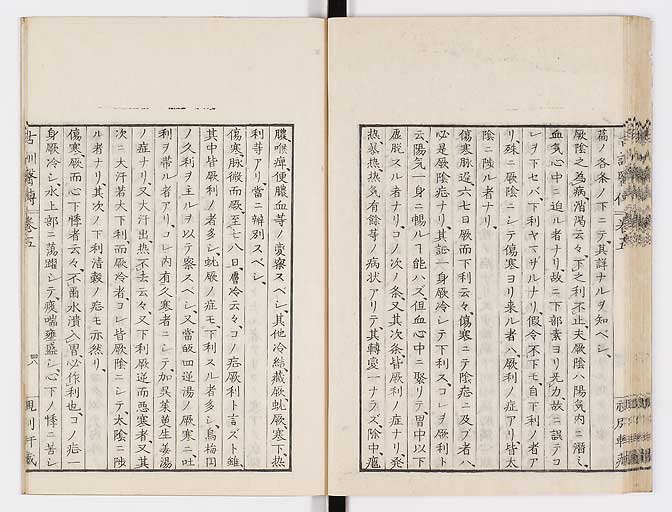 篇ノ各条ノ下ニテ其詳ナルヲ知ベシ、
厥陰之為病消渇云々、下之利不止夫厥陰ハ陽気内ニ潜ミ、
血気心中ニ迫ル者ナリ故ニ下部素ヨリ
レヲ下セバ下利ヤマザルナリ、假令不下モ自下利ノ者ア
リ、殊ニ厥陰ニシテ傷寒ヨリ来ル者ハ厥利ノ症アリ皆太
陰ニ陟ル者ナリ、
傷寒脉遅六七日厥而下利云々、傷寒ニテ陰症ニ及ブ者ハ、
必是厥陰症ナリ、其証一身厥冷シテ下利スコレヲ厥利ト
云陽気一身ニ暢ル能ハズ但血心中ニ聚リテ胃中以下
虚脱スル者ナリコノ次ノ条又其次条皆厥利ノ症ナリ発
熱暴熱熱気有餘等ノ病状アリテ、其轉変一ナラズ除中、
膿喉痺便膿血等ノ変察スベシ、其他冷結蔵厥蚘厥寒下熱
利等アリ、當ニ辨別スベシ、
傷寒脉微而厥至七八日膚冷云々、コノ症厥利ト言ズト雖、
其中皆厥利ノ者多シ、蚘厥ノ症モ、下利スル者多シ、烏梅円
ノ久利ヲ主ルヲ以テ察スベシ、又當皈四逆湯ノ厥寒ニ吐
利ヲ帯ル者アリ、コレ内有久寒者ニシテ、加呉茱萸生姜湯
ノ症ナリ、又大汗出熱不去云々、又下利厥逆而悪寒者又其
次ニ大汗若大下利而厥冷者、コレ皆厥陰ニシテ太陰ニ陟
ル者ナリ、其次ノ下利清穀ノ症モ亦然リ、
傷寒厥而心下悸者云々、不爾水漬入胃必作利也、コノ症一
身厥冷シ、水上部ニ蕩躍シテ、痰喘壅盛シ、心下ノ悸ニ苦シ
古訓醫傳 巻五
四八